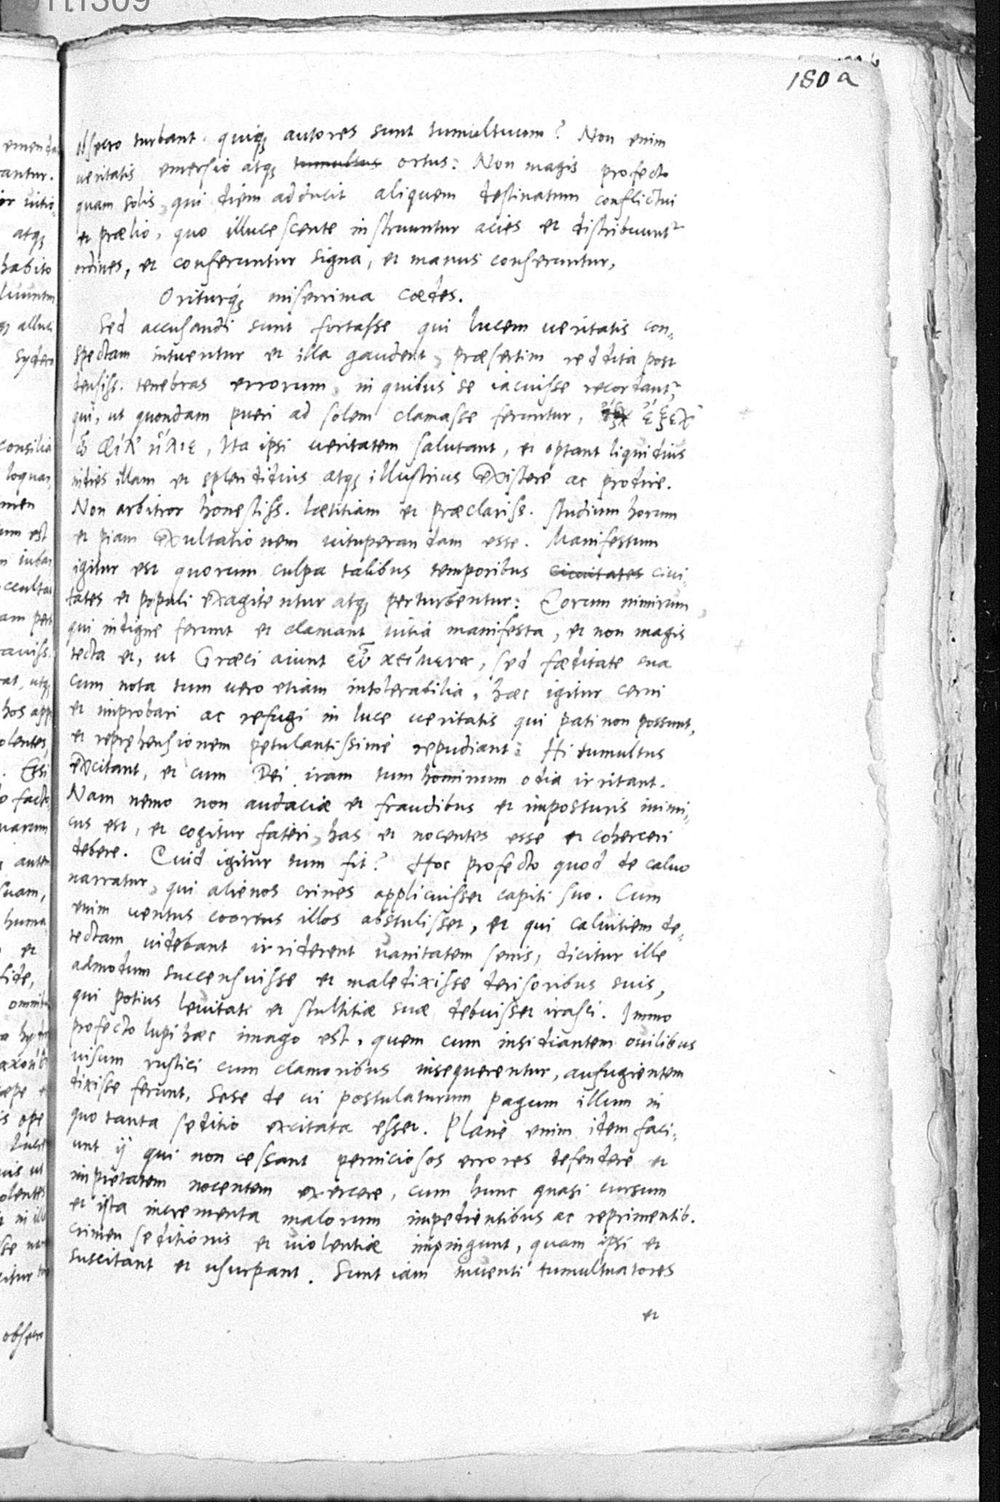 180 a
obsecro turbant. quiq; autores sunt tumultuum? Non enim
veritatis emersio atq; tumultus ortus: Non magis profecto
quam solis, qui diem adducit aliquem destinatum conflictui
et prælio, quo illucescente instruuntur acies et distribuunt²
ordines, et conferuntur signa, et manus conseruntur,
Oriturq; miserrima cædes.
Sed accusandi sunt fortasse qui lucem veritatis con-
spectam intuentur et illa gaudent, præsertim reddita post
densiss. tenebras errorum, in quibus se iacuisse recordant²,
qui, ut quondam pueri ad solem clamasse feruntur, ἔξεχ
ὦ φίλ' ἥλιε, Ita ipsi veritatem salutant, et optant liquidius
indies illam et splendidius atq; illustrius existere ac prodire.
Non arbitror honestiss. lætitiam et præclariss. studium horum
et piam exultationem vituperandam esse. Manifestum
igitur est quorum culpa talibus temporibus civi-
tates et populi exagitentur atq; perturbentur: Eorum nimirum,
qui indigne ferunt et clamant vitia manifesta, et non magis
tecta et, ut Græci aiunt εὖ κείμενα, sed fæditate sua
cum nota tum vero etiam intolerabilia, hæc igitur cerni
et improbari ac refugi in luce veritatis qui pati non possunt,
et reprehensionem petulantissimè repudiant: Hi tumultus
excitant, et cum Dei iram tum hominum odia irritant.
Nam nemo non audaciæ et fraudibus et imposturis inimi-
cus est, et cogitur fateri, has et nocentes esse et coherceri
debere. Quid igitur tum fit? Hoc profecto quod de calvo
narratur, qui alienos crines applicuisset capiti suo. Cum
enim ventus coortus illos abstulisset, et qui calvitiem de-
tectam videbant irriderent vanitatem senis, dicitur ille
admodum succensuisse et maledixisse derisoribus suis,
qui potius levitati et stultitiæ suæ debuisset irasci. Immo
profecto lupi hæc imago est, quem cum insidiantem ovilibus
visum rustici cum clamoribus insequerentur, aufugientem
dixisse ferunt, Sese de vi postulaturum pagum illum in
quo tanta seditio excitata esset. Planè enim idem faci-
unt ij qui non cessant perniciosos errores defendere et
impietatem nocentem exercere, cum hunc quasi cursum
et ista incrementa malorum impedientibus ac reprimentib.
crimen seditionis et violentiæ impingunt, quam ipsi et
suscitant et usurpant. Sunt iam inventi tumultuatores
et